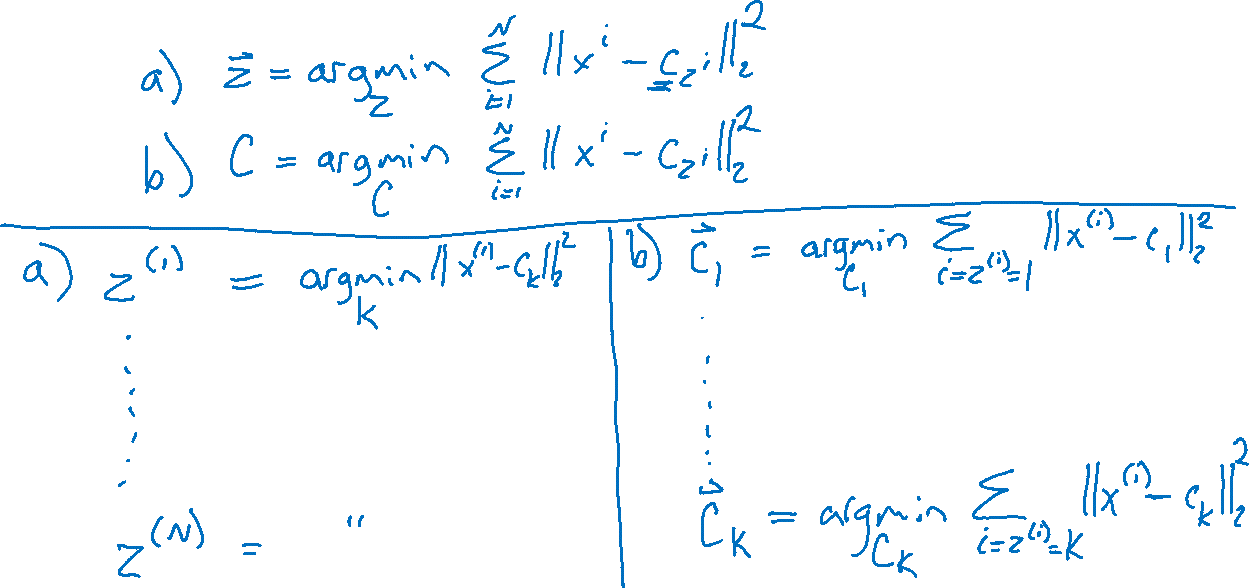 a) z⃗ = argmin_z Σ_{i=1}^{N} ||x^i - c_{z^i}||_2^2
b) C = argmin_C Σ_{i=1}^{N} ||x^i - c_{z^i}||_2^2
a) z^{(1)} = argmin_k ||x^{(1)} - c_k||_2^2
z^{(N)} = "
b) c⃗_1 = argmin_{c_1} Σ_{i=z^{(i)}=1} ||x^{(i)} - c_1||_2^2
c⃗_K = argmin_{c_K} Σ_{i=z^{(i)}=K} ||x^{(i)} - c_k||_2^2